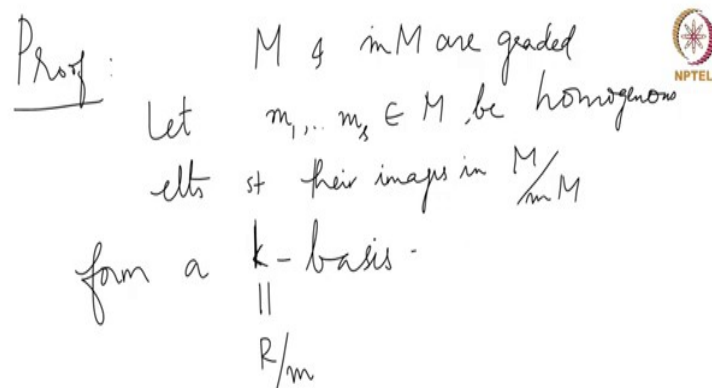 Proof : M & mM are graded
NPTEL
Let m₁,... mₛ ∈ M, be homogenous
elts st their images in M/mM
form a k - basis.
||
R/m